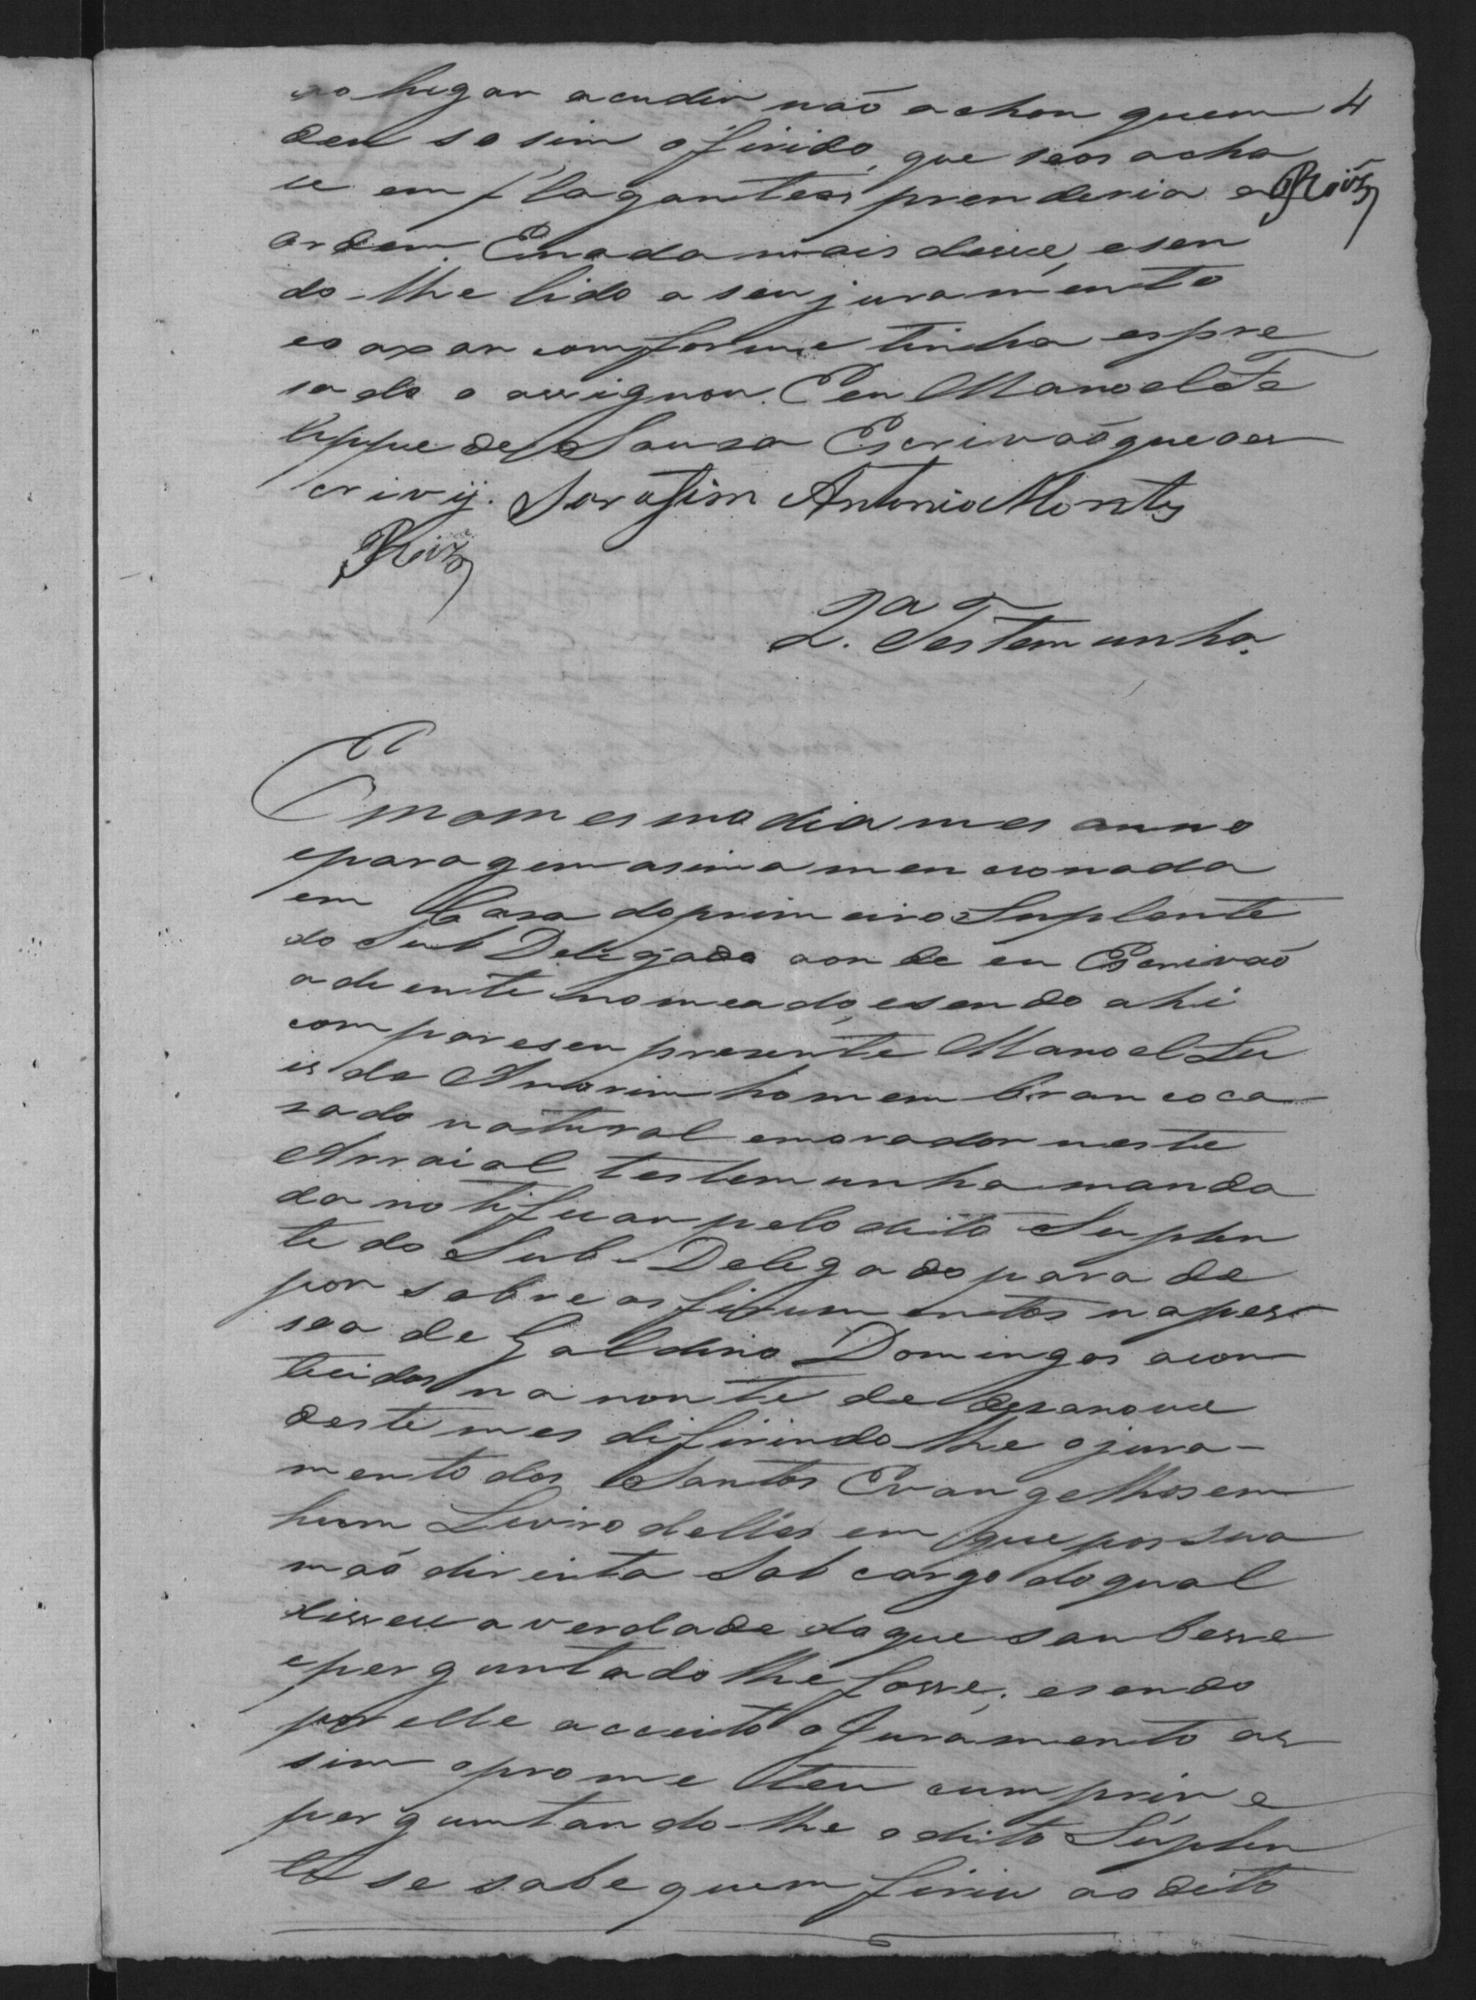 no lugar acudir não achou quem 4
deu so sim o firido, que seos acha
se em flagantes prenderia a Roiz
ordem. E nada mais disse, e sen
do-lhe lido o seu juramento
eo axar comforme tinha espre
sado o assignou. E eu Manoel Fe
lippe de Souza Escrivaõ que oes
crivÿ. Sarafim Antonio Montes
Roiz
2.ª Testemunha.
E no mesmo dia mes anno
eparagem asima mencionada
em Casa do primeiro Suplente
do Sub Delegado aonde eu Escrivaõ
adiente nomeado, esendo ahi
compareseu presente Manoel Lu
is de Amorim homem branco ca
sado natural emorador neste
Arraial testemunha manda
da notificar pelo dito Suplen
te do Sub-Delegado para de
por sobre os firimentos napes
soa de Galdino Domingos acon
tecidos na noute de dezanove
deste mes difirindo-lhe o jura-
mento dos Santos Evangelhos em
hum Livro delles em que pos sua
maõ direita Sob cargo do qual
disseçe a verdade do que soubesse
eperguntado lhe fosse, esendo
por elle acceito o Juramento as
sim oprometteu cumprir e
perguntando-lhe o dito Suplen
te se sabe quem firiu ao dito